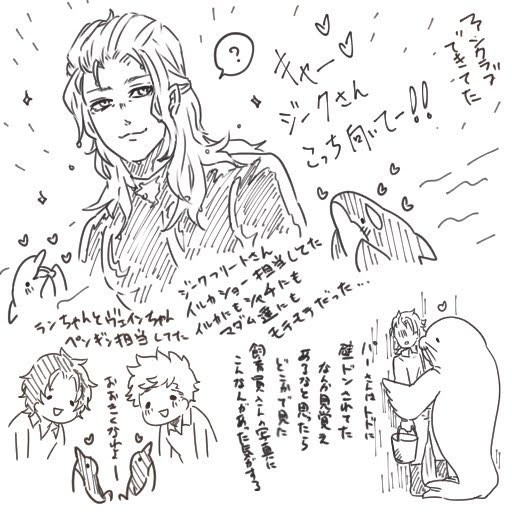 ファンクラブ
できてた
?
キャー
ジークさん
こっち向いてー!!
ジークフリートさん
イルカショー担当してた
イルカにもシャチにも
マダム達にも
モテモテだった…
ランちゃんとヴェインちゃん
ペンギン担当してた
おおきくなれよー
パーさんはトドに
壁ドンされてた
なんか見覚え
あるなと思ったら
どこかで見た
飼育員さんの写真に
こんなんがあった気がする